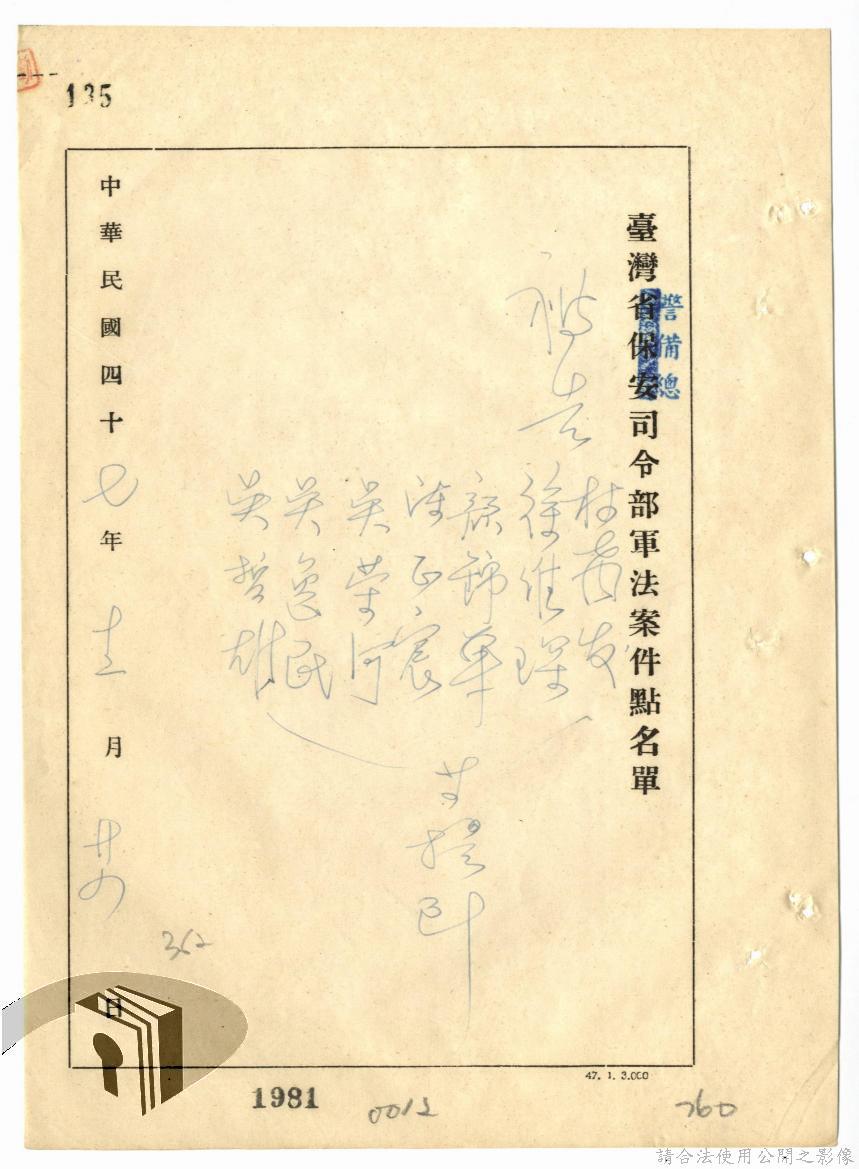 135
臺灣省保安司令部軍法案件點名單
警備總
被告
林
徐維琛
孫錦華
陳正宸
吳崇河
吳逸民
吳哲雄
提
中華民國四十七年十二月廿四日
362
47. 1. 3.000
1981
0012
760
請合法使用公開之影像